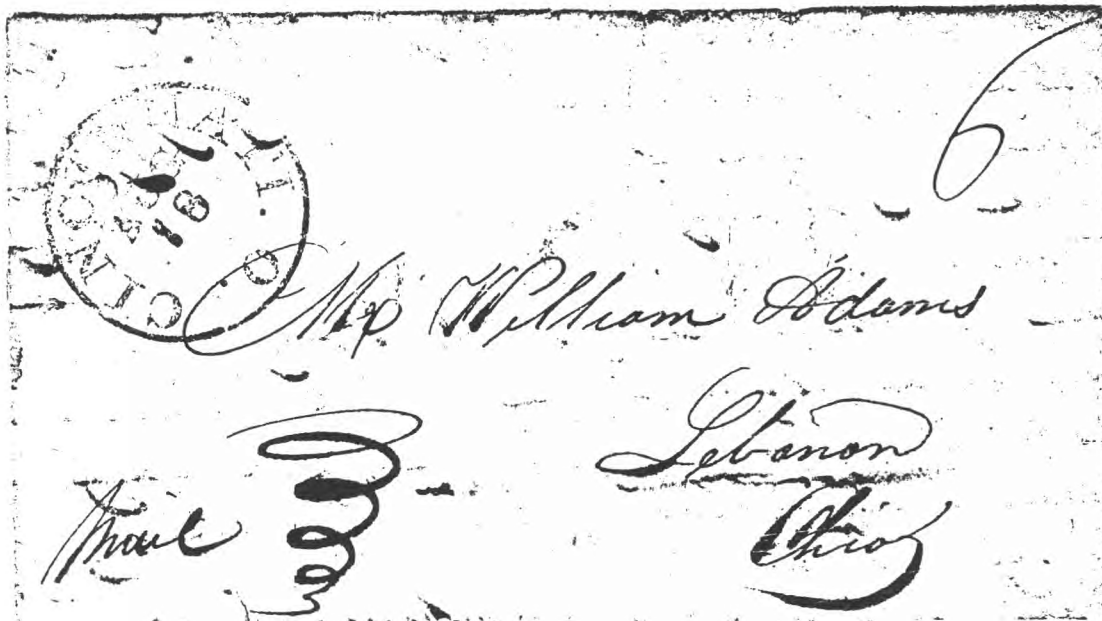 6
CINCINNATI O.
18
Mr William Adams
Lebanon
Ohio
Mail